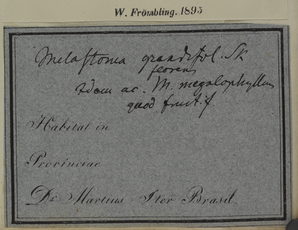 W. Frösabling. 1895
Melastoma grandifol. Sk
florens
Idem ac. M. megalophyllum
quod fructif
Habitat in
Provinciae
Dr. Martius Iter Brasil.